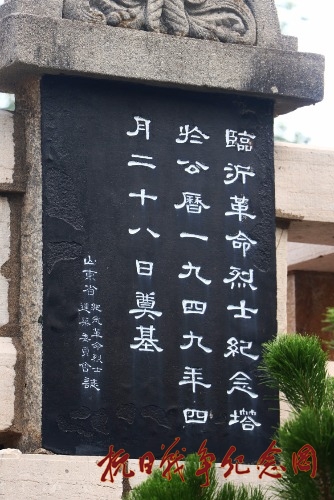 臨沂革命烈士紀念塔
於公曆一九四九年四
月二十八日奠基
山東省紀念革命烈士
建築委員會誌
抗日战争纪念网